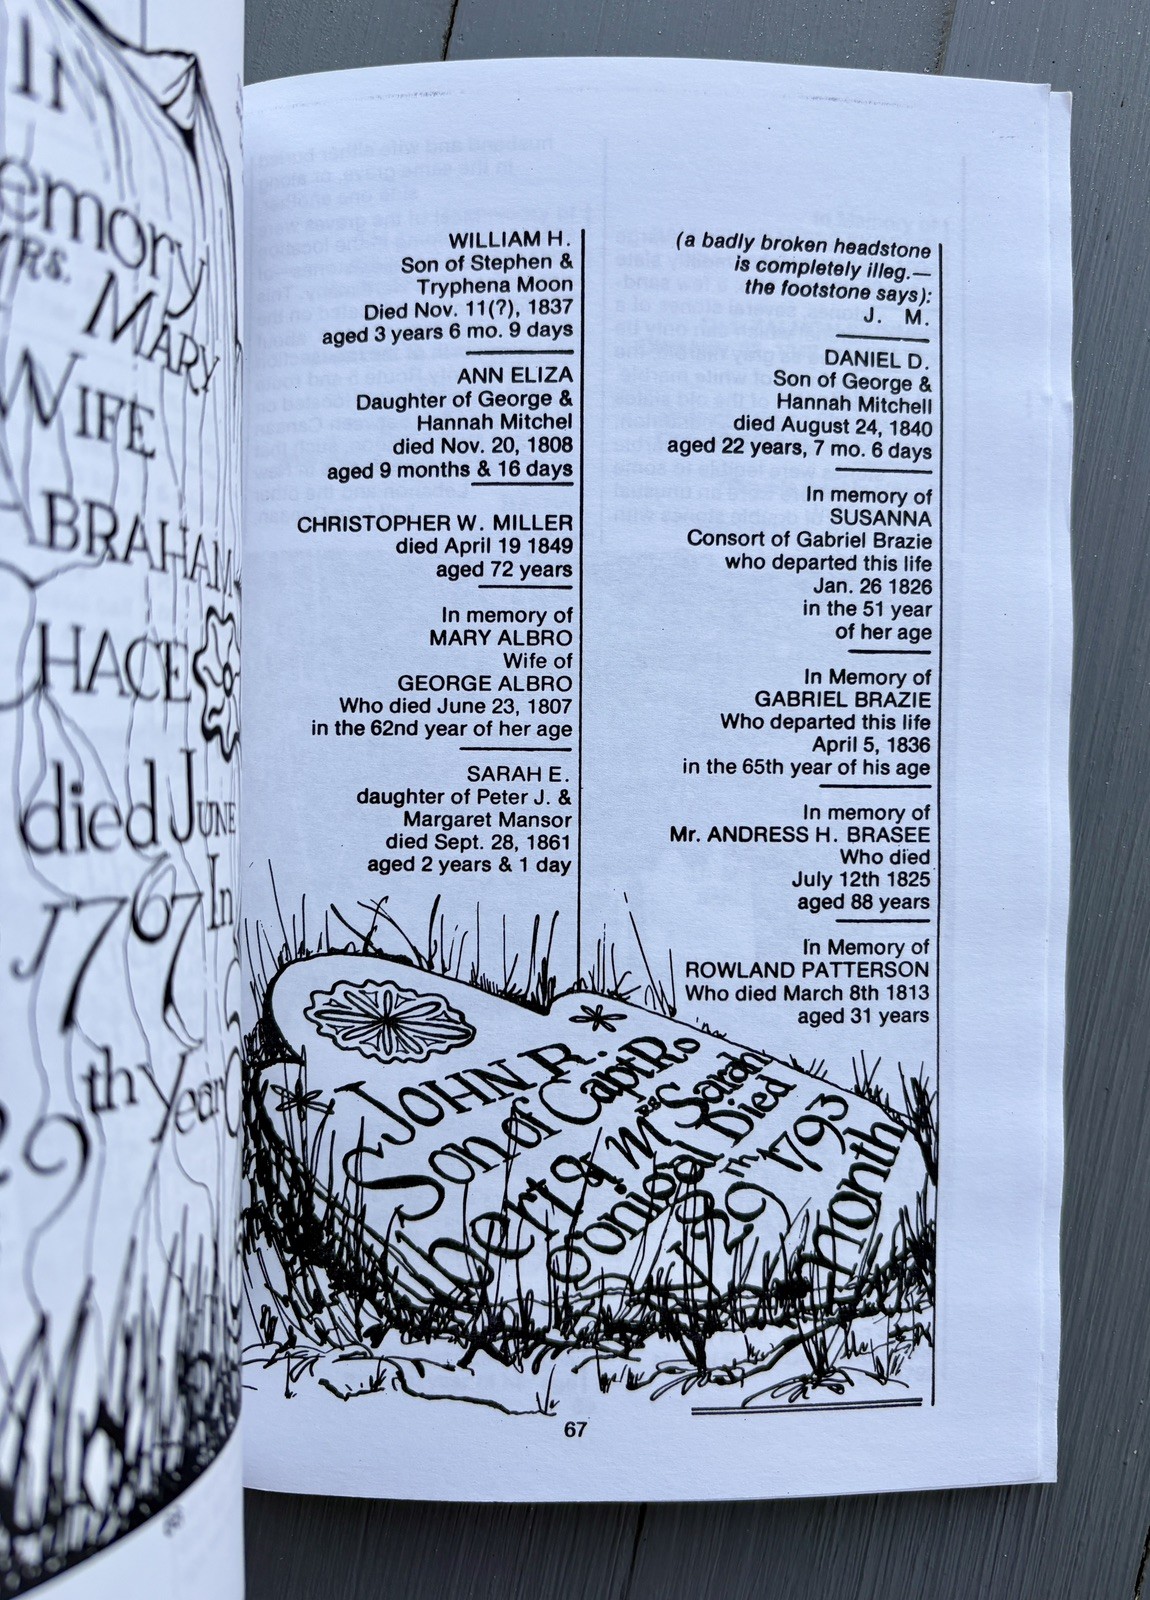 In
emory
Mrs. Mary
Wife
Abraham
Hace
died June
1767 In
th Year
WILLIAM H.
Son of Stephen &
Tryphena Moon
Died Nov. 11(?), 1837
aged 3 years 6 mo. 9 days
ANN ELIZA
Daughter of George &
Hannah Mitchel
died Nov. 20, 1808
aged 9 months & 16 days
CHRISTOPHER W. MILLER
died April 19 1849
aged 72 years
In memory of
MARY ALBRO
Wife of
GEORGE ALBRO
Who died June 23, 1807
in the 62nd year of her age
SARAH E.
daughter of Peter J. &
Margaret Mansor
died Sept. 28, 1861
aged 2 years & 1 day
(a badly broken headstone
is completely illeg.—
the footstone says):
J. M.
DANIEL D.
Son of George &
Hannah Mitchell
died August 24, 1840
aged 22 years, 7 mo. 6 days
In memory of
SUSANNA
Consort of Gabriel Brazie
who departed this life
Jan. 26 1826
in the 51 year
of her age
In Memory of
GABRIEL BRAZIE
Who departed this life
April 5, 1836
in the 65th year of his age
In memory of
Mr. ANDRESS H. BRASEE
Who died
July 12th 1825
aged 88 years
In Memory of
ROWLAND PATTERSON
Who died March 8th 1813
aged 31 years
John R.
Son of Capt Ro
bert & Mrs Sarah
Died
29th 1793
Month
67